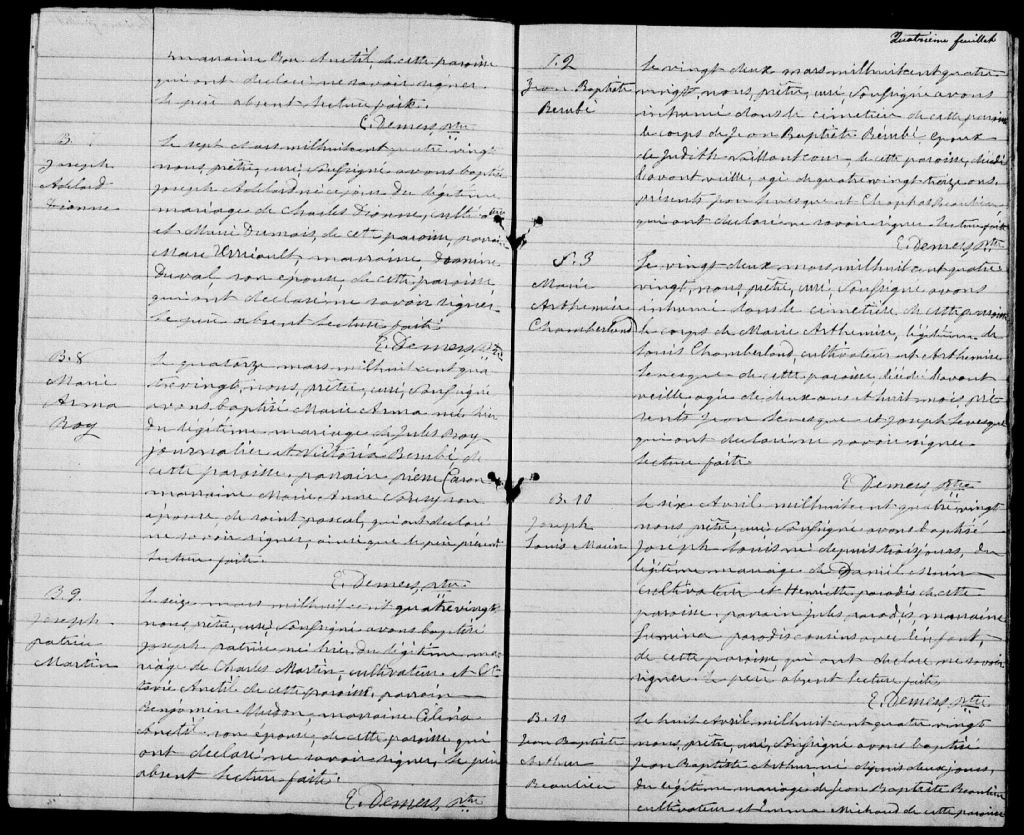 marraine Roy Anctil, de cette paroisse
qui ont déclaré ne savoir signer.
Le père absent Lecture faite.
E. Demers Ptre
B.
Joseph
Adelard
Dionne
Le sept Mars mil huit cent quatre vingt
nous, prêtre, curé, soussigné avons baptisé
Joseph Adelard né ce jour du légitime
mariage de Charles Dionne,
et Marie Dumais, de cette paroisse, parrain
Marc Verriault, marraine
Duval, son épouse, de cette paroisse,
qui ont déclaré ne savoir signer
Le père absent Lecture faite
E. Demers Ptre
B. 8
Marie
Arma
Roy
Le quatorze mars mil huit cent qua
tre vingt, nous, prêtre, curé, soussigné
avons baptisé Marie Arma née hier
du légitime mariage de Jules Roy
journalier et Victoria Bérubé de
cette paroisse parrain pierre Caron
marraine Marie Anne Soucy son
épouse, de saint pascal, qui ont déclaré
ne savoir signer, ainsi que le père présent
Lecture faite.
E. Demers, Ptre
B. 9.
Joseph
patrice
Martin
Le seize mars mil huit cent quatre vingt
nous, prêtre, curé, soussigné avons baptisé
Joseph patrice né hier, du légitime ma
riage de Charles Martin, cultivateur et Oc
tavie Anctil de cette paroisse, parrain
Benjamin marraine Célina
Anctil son épouse, de cette paroisse qui
ont déclaré ne savoir signer, Le père
absent Lecture faite.
E. Demers, Ptre
Quatrième feuillet
S. 2
Jean Baptiste
Bérubé
Le vingt deux mars mil huit cent quatre
vingt, nous, prêtre, curé, soussigné avons
inhumé dans le cimetière de cette paroisse
le corps de Jean Baptiste Bérubé Epoux
de Judith Vaillancour de cette paroisse, décédé
l'avant veille, agé de quatre vingt treize ans.
présents Jean Levesque et Cléophas Beaulieu
qui ont déclaré ne savoir signer Lecture faite
E. Demers, Ptre
S. 3
Marie
Arthemise
Chamberland
Le vingt deux mars mil huit cent quatre
vingt, nous, prêtre, curé, soussigné avons
inhumé dans le cimetière, de cette paroisse
le corps de Marie Arthemise, légitime de
Louis Chamberland, cultivateur et Arthemise
Levesque de cette paroisse, décédée l'avant
veille agée de deux ans et huit mois, pré
sents Jean Levesque et Joseph Levesque
qui ont déclaré ne savoir signer
Lecture faite
E. Demers, Ptre
B. 10
Joseph
Louis Morin
Le six Avril mil huit cent quatre vingt
nous, prêtre, curé soussigné avons baptisé
Joseph Louis né depuis trois jours, du
légitime mariage de Daniel Morin
Cultivateur et Henriette paradis de cette
paroisse parrain Jules paradis, marraine
Lumina paradis cousins avec l'enfant,
de cette paroisse, qui ont déclaré ne savoir
signer Le père absent Lecture faite
E. Demers, Ptre
B. 11
Jean Baptiste
Arthur
Beaulieu
Le huit Avril mil huit cent quatre vingt
nous, prêtre, curé, soussigné avons baptisé
Jean Baptiste Arthur, né depuis deux jours,
du légitime mariage de Jean Baptiste Beaulieu
cultivateur et Emma Michaud de cette paroisse